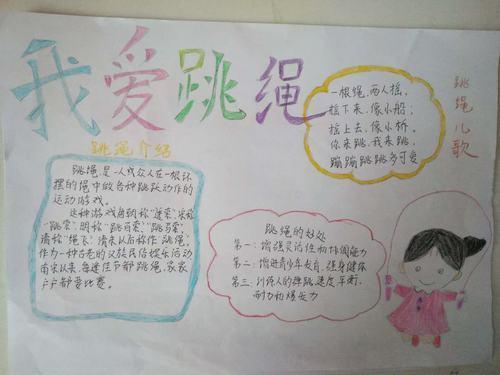 我爱跳绳
跳绳介绍
跳绳,是一人或众人在一根环
摆的绳中做各种跳跃动作的
运动游戏。
这种游戏唐朝称"透索",宋称
"跳索",明称"跳百索""跳马索",
清称"绳飞",清末以后称作"跳绳。
作为一种古老的汉族民俗娱乐活动
南宋以来,每逢佳节都跳绳,家家
户户都要比赛。
一根绳,两人摇。
摇下来,像小船;
摇上去,像小桥。
你来跳,我来跳,
蹦蹦跳跳多可爱
跳绳儿歌
跳绳的好处
第一:增强灵活性和协调能力
第二:增进青少年发育,强身健体
第三:训练人的弹跳、速度、平衡、
耐力和爆发力